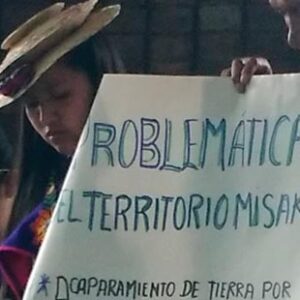 ROBLEMÁTICA
EL TERRITORIO MISAK
* ACAPARAMIENTO DE TIERRA POR